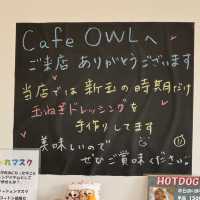 Cafe OWLへ
ご来店 ありがとうございます
当店では 新玉の時期だけ
玉ねぎドレッシングを
手作りしてます
美味しいので
ぜひご賞味ください。
れマスク
HOTDOG